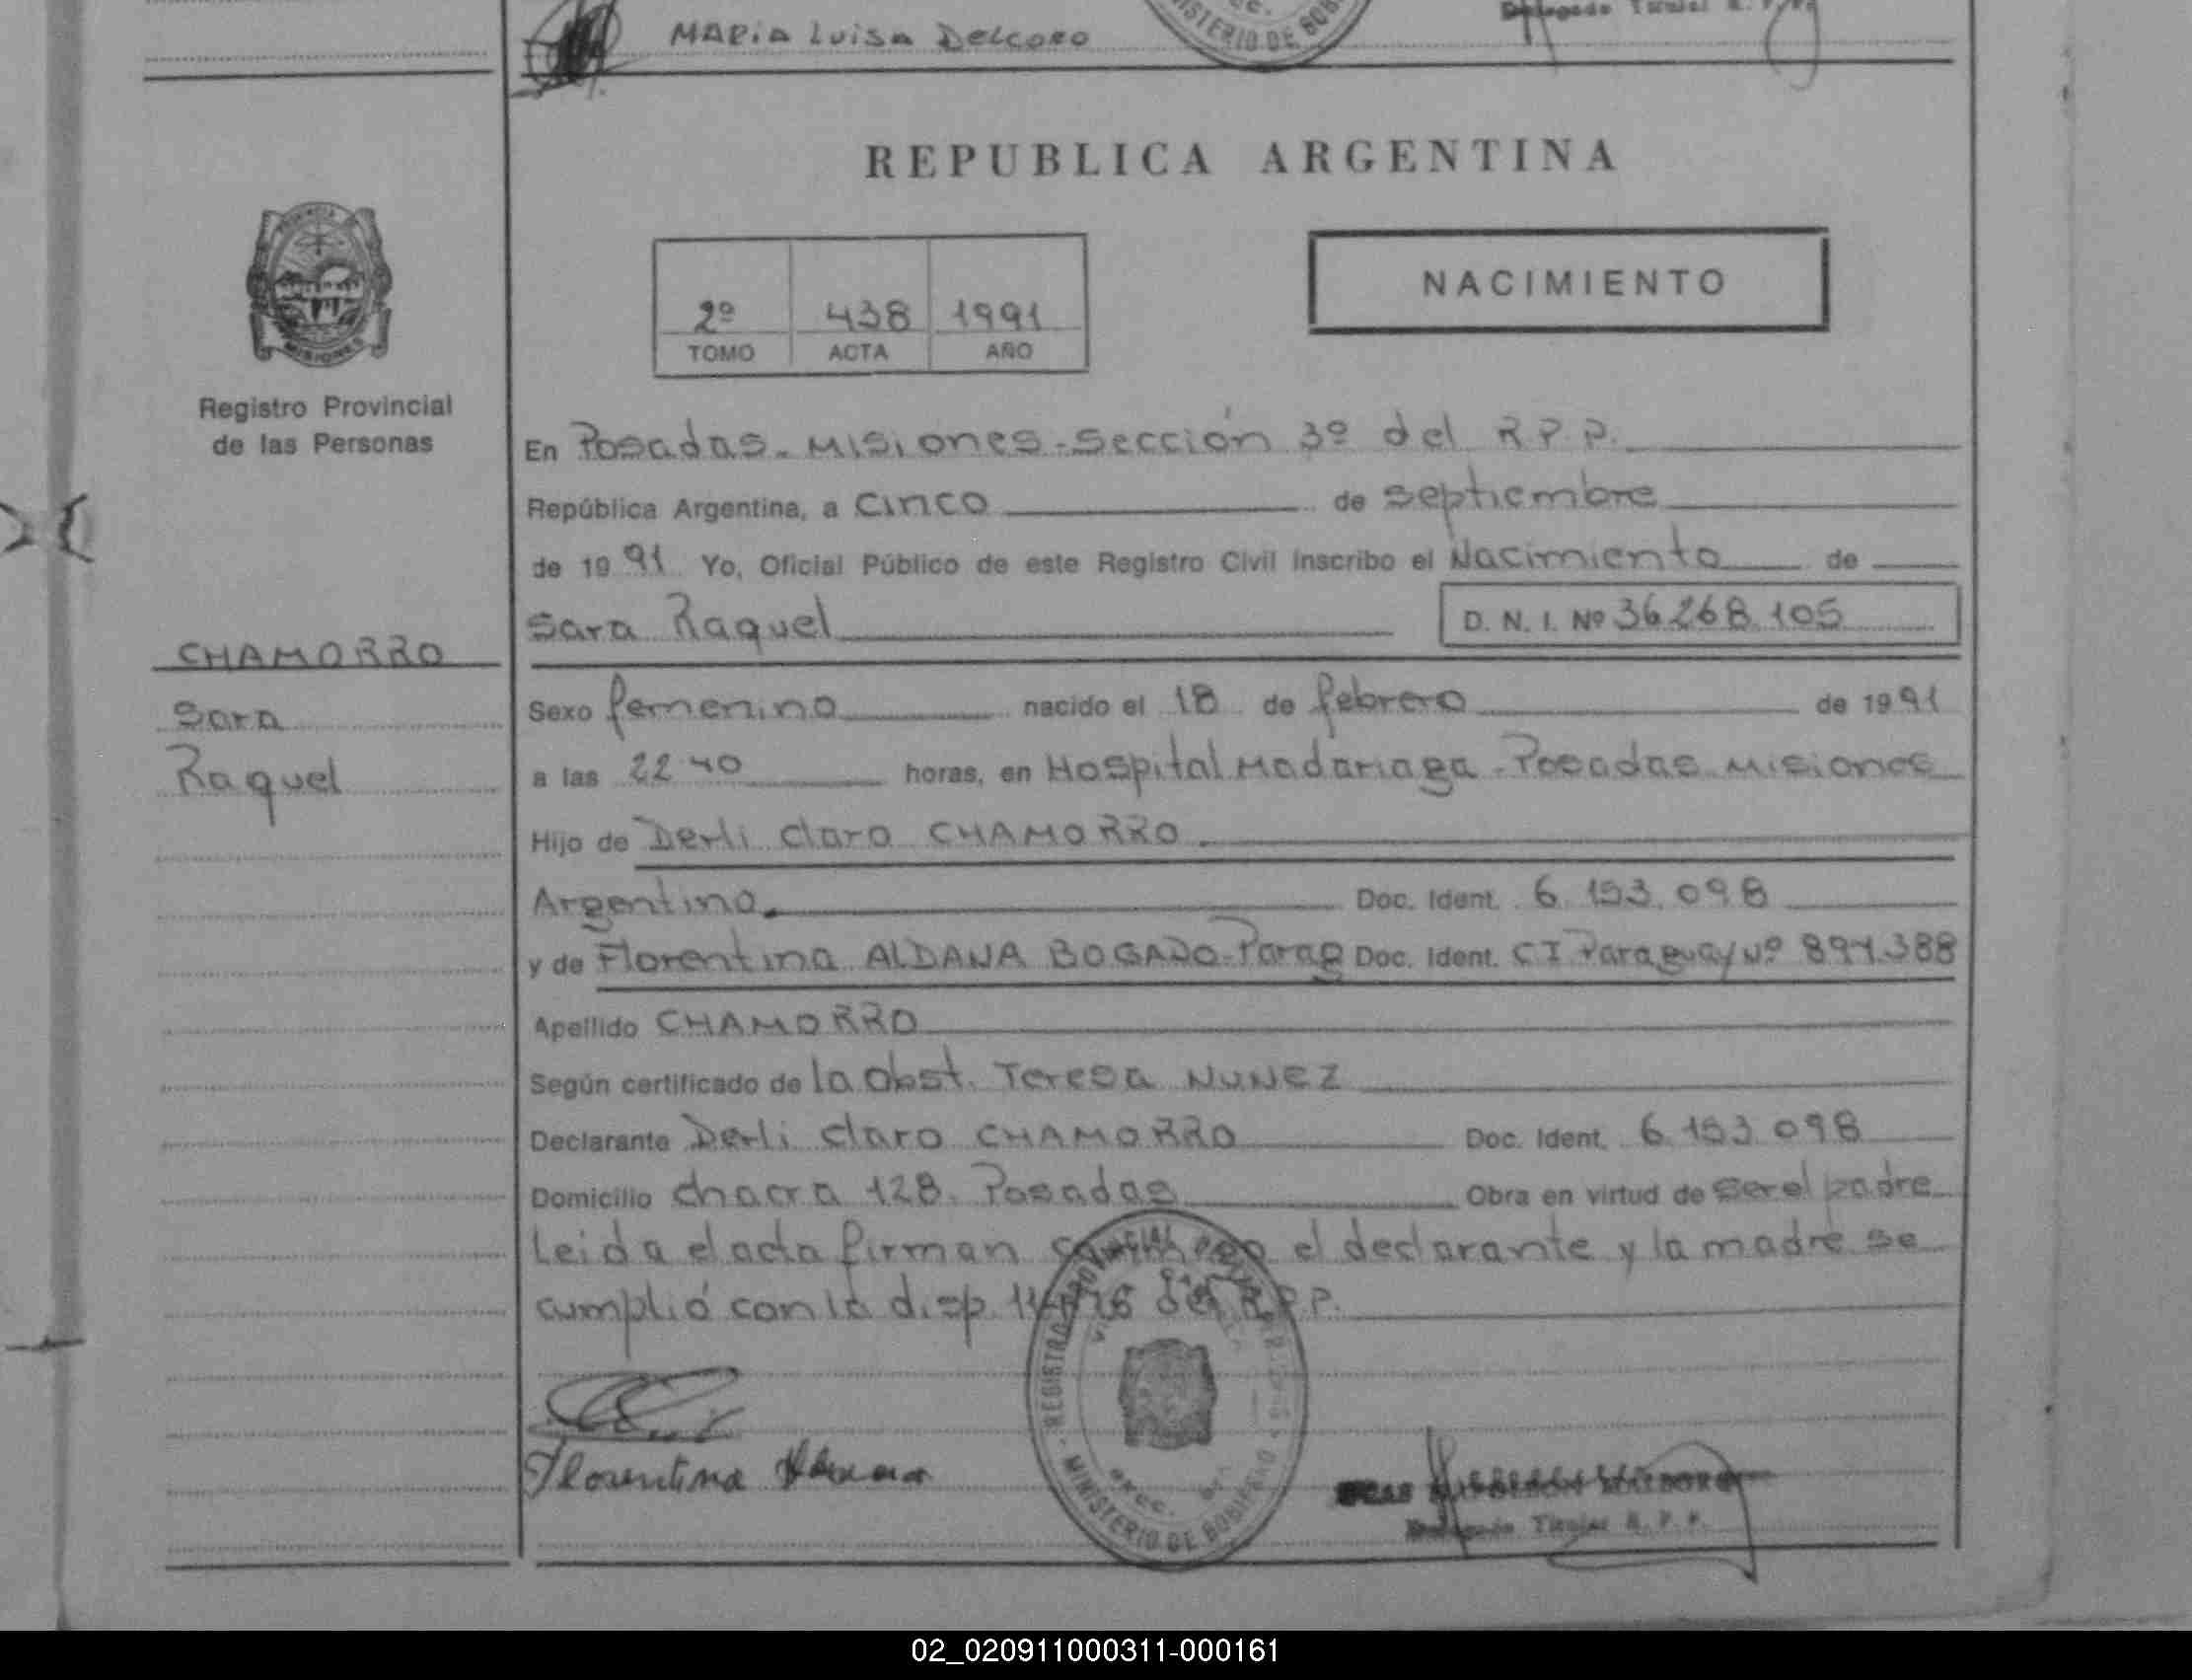 MARIA LUISA DELCORO
MINISTERIO DE GOB
Delegado Titular R. P. P.
REPUBLICA ARGENTINA
PROVINCIA
MISIONES
Registro Provincial
de las Personas
2º 438 1991
TOMO ACTA AÑO
NACIMIENTO
En Posadas - Misiones - Sección 3º del R.P.P.
República Argentina, a Cinco de septiembre
de 1991 Yo, Oficial Público de este Registro Civil inscribo el Nacimiento de
Sara Raquel D. N. I. Nº 36.268.105
CHAMORRO
Sara
Raquel
Sexo femenino nacido el 18 de febrero de 1991
a las 22 40 horas, en Hospital Madariaga - Posadas Misiones
Hijo de Derli Claro CHAMORRO
Argentino. Doc. Ident. 6.153.098
y de Florentina ALDANA BOGADO - Parag Doc. Ident. CI Paraguay Nº 891.388
Apellido CHAMORRO
Según certificado de la obst. Teresa NUNEZ
Declarante Derli Claro CHAMORRO Doc. Ident. 6.153.098
Domicilio chacra 128. Posadas Obra en virtud de ser el padre
Leida el acta firman el declarante y la madre se
cumplió con la disp. del R.P.P.
REGISTRO PROVINCIAL
MINISTERIO DE GOBIERNO
SECC.
Florentina
Delegado Titular R. P. P.
02_020911000311-000161